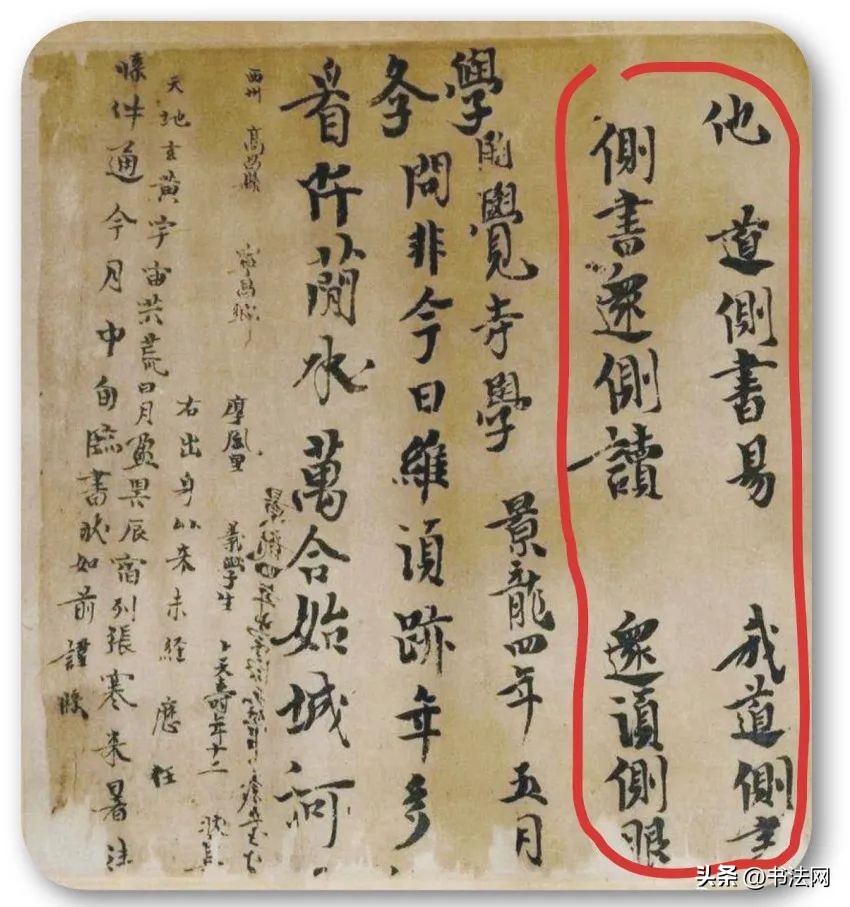 他 道側書易 我道側書
側書還側讀 還須側眼
學 覺寺學 景龍四年五月
問非今日維須跡年多
看阡簡水萬合始城河
景龍四年
西州 高昌縣 寧昌鄉 厚風里 義學生 卜天壽年十二 狀具
右出身以来未經歷任
天地玄黃宇宙洪荒日月盈昃辰宿列張寒来暑注
牒件通今月中旬臨書狀如前謹牒
头条 @书法网